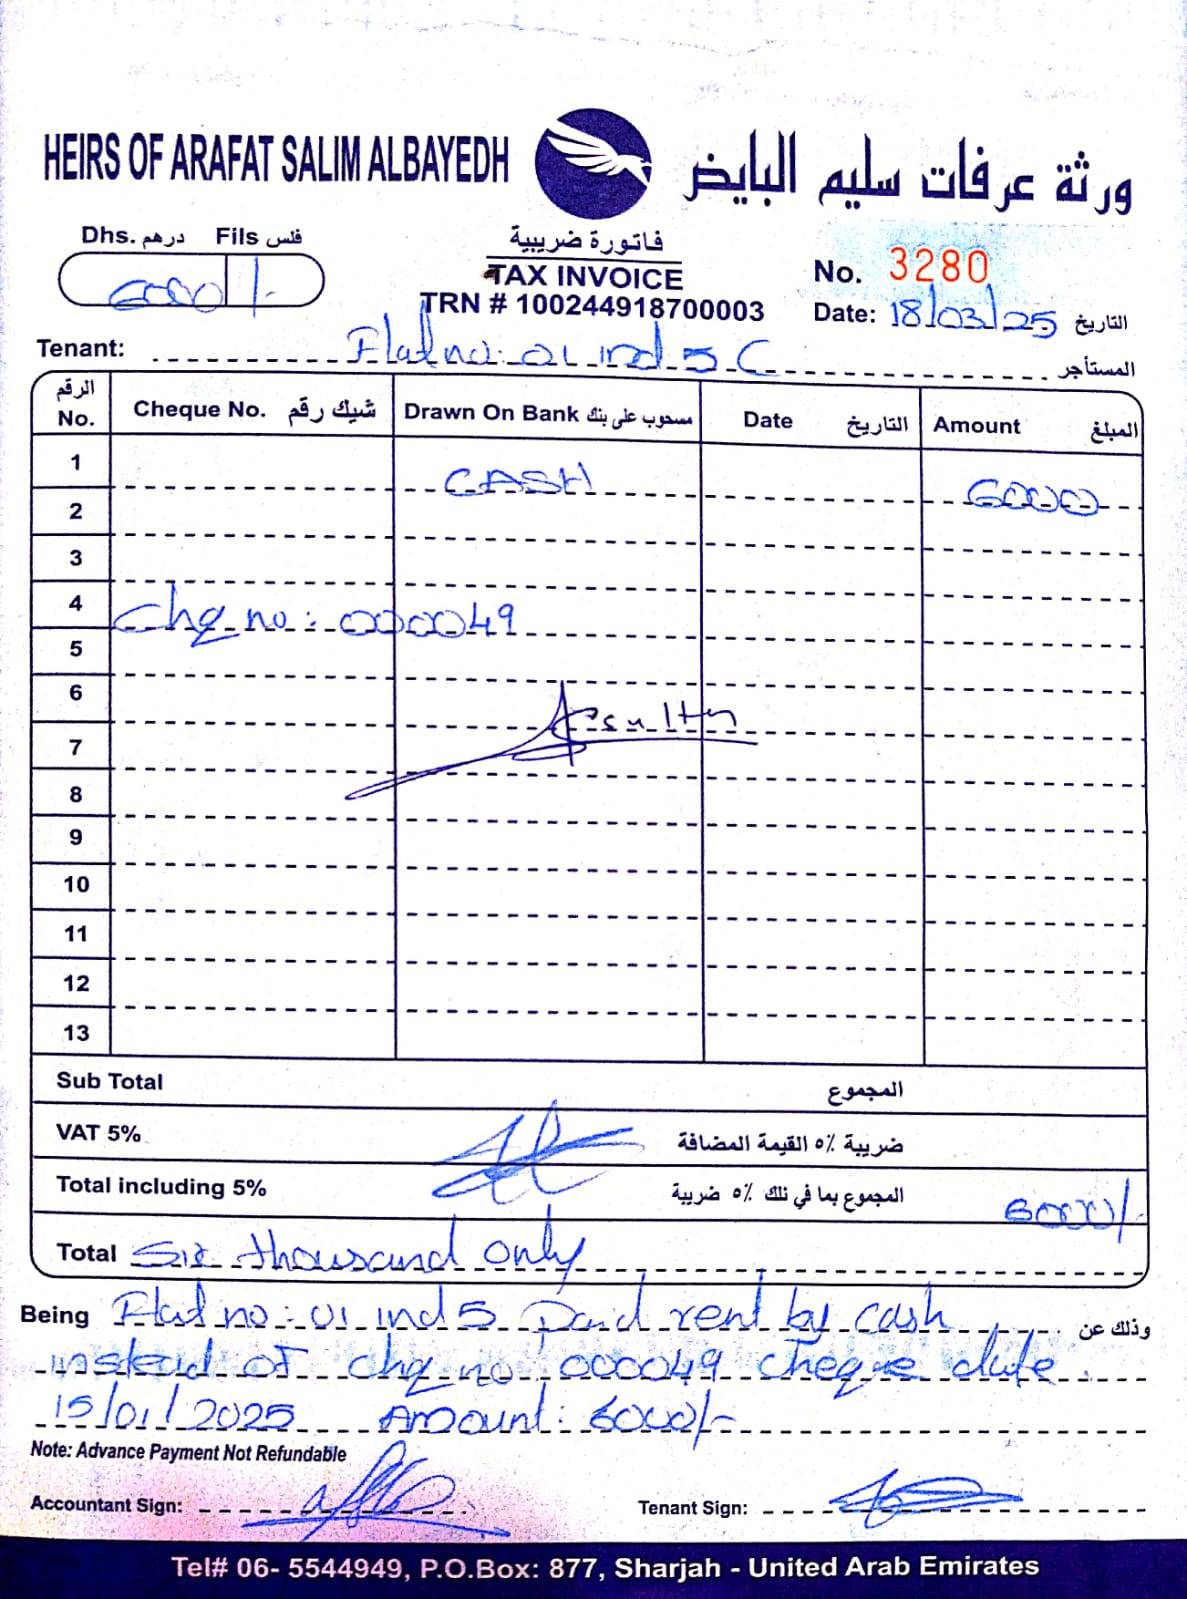 HEIRS OF ARAFAT SALIM ALBAYEDH ورثة عرفات سليم البايض
Dhs. درهم Fils فلس
6000/-
فاتورة ضريبية
TAX INVOICE
TRN # 100244918700003
No. 3280
Date: 18/03/25 التاريخ
Tenant: Flat no: 01 ind 5 C المستأجر
الرقم No. Cheque No. شيك رقم Drawn On Bank مسحوب على بنك Date التاريخ Amount المبلغ
1 CASH 6000
2
3
4 Chq no: 000049
5
6
7
8
9
10
11
12
13
Sub Total المجموع
VAT 5% ضريبة ٥٪ القيمة المضافة
Total including 5% المجموع بما في ذلك ٥٪ ضريبة 6000/-
Total Six thousand only
Being Flat no: 01 ind 5 Paid rent by cash وذلك عن
instead of chq no: 000049 cheque date
15/01/2025 Amount: 6000/-
Note: Advance Payment Not Refundable
Accountant Sign: Tenant Sign:
Tel# 06- 5544949, P.O.Box: 877, Sharjah - United Arab Emirates